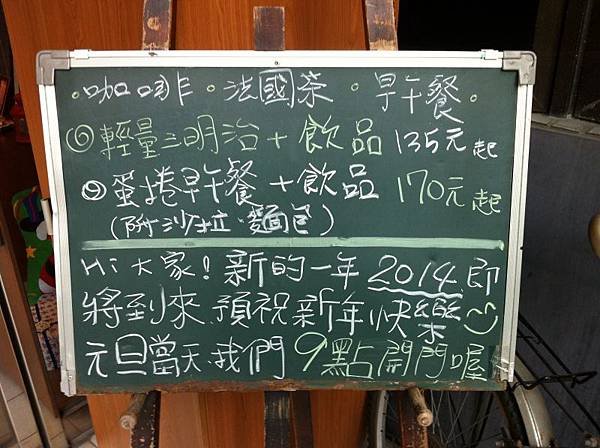 ·咖啡·法國茶·早午餐·
◎輕量三明治+飲品 135元起
◎蛋捲早午餐+飲品 170元起
(附沙拉·麵包)
Hi大家!新的一年2014即
將到來預祝新年快樂
元旦當天我們9點開門喔